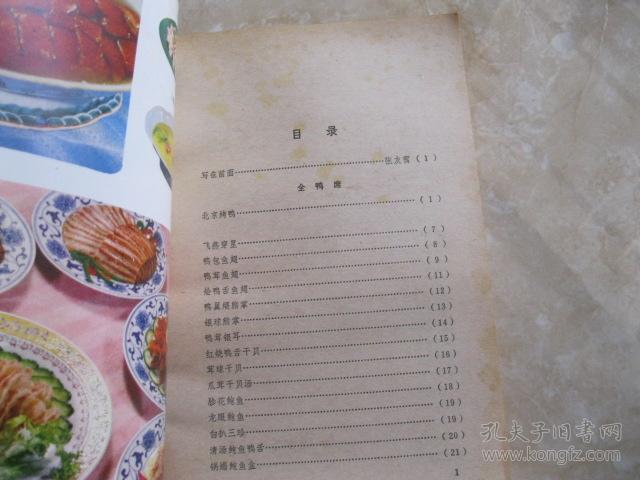 目 录
写在前面……………………………张友鸾 (1)
全 鸭 席
北京烤鸭……………………………(1)
飞燕穿星……………………………(7)
鸭包鱼翅……………………………(8)
鸭茸鱼翅……………………………(9)
烩鸭舌鱼翅……………………………(11)
鸭翼煨熊掌……………………………(12)
银球熊掌……………………………(13)
鸭茸银耳……………………………(14)
红烧鸭舌干贝……………………………(15)
茸球干贝……………………………(16)
瓜茸干贝汤……………………………(17)
胗花鲍鱼……………………………(18)
龙眼鲍鱼……………………………(19)
白扒三珍……………………………(19)
清汤鲍鱼鸭舌……………………………(20)
锅塌鲍鱼盒……………………………(21)
1
孔夫子旧书网